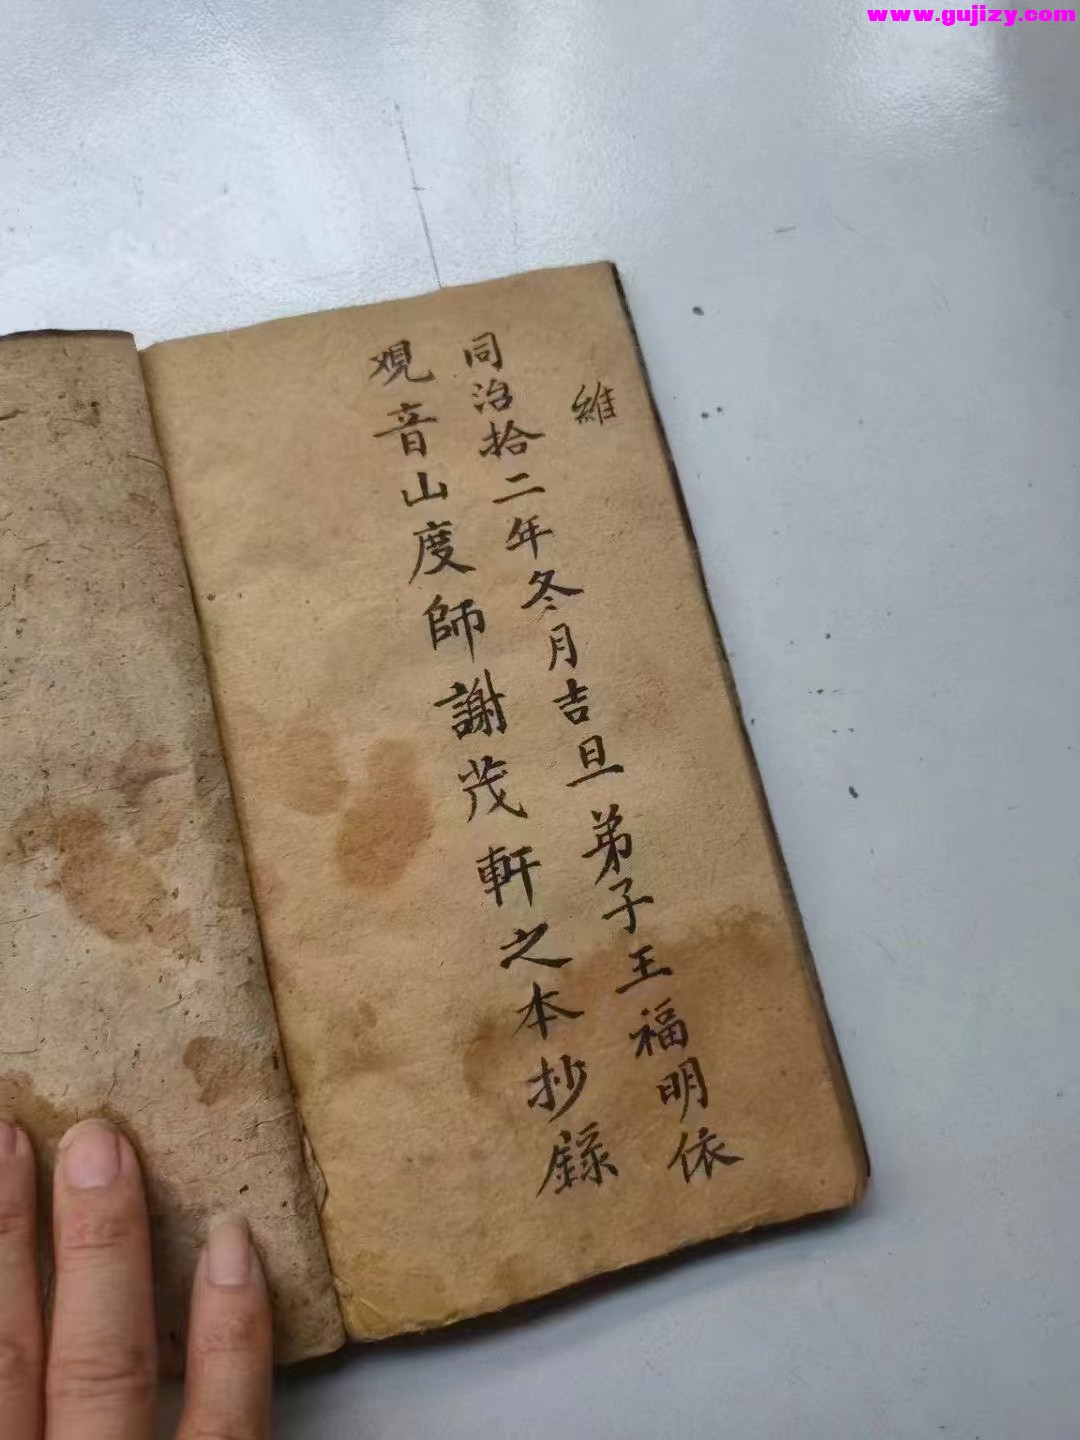 www.gujizy.com
維
同治拾二年冬月吉旦弟子王福明依
观音山度師謝茂軒之本抄録